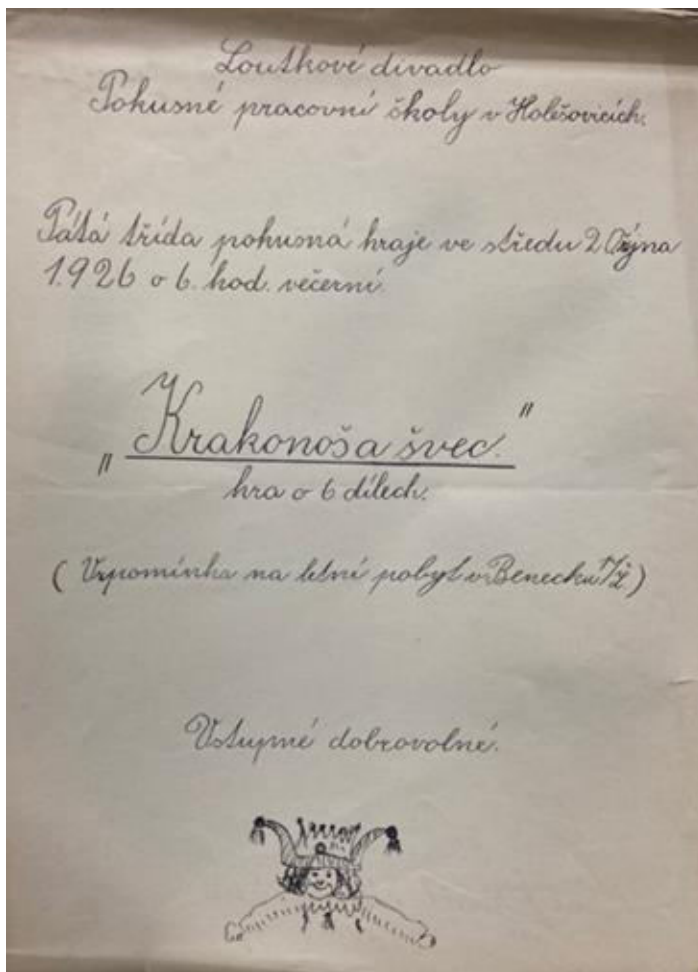 Loutkové divadlo
Pokusné pracovní školy v Holešovicích.
Pátá třída pohusná hraje ve středu 20 října
1926 o 6. hod. večerní.
„Krakonoša švec."
hra o 6 dílech.
(Vzpomínka na letní pobyt v Benecku
Vstupné dobrovolné.